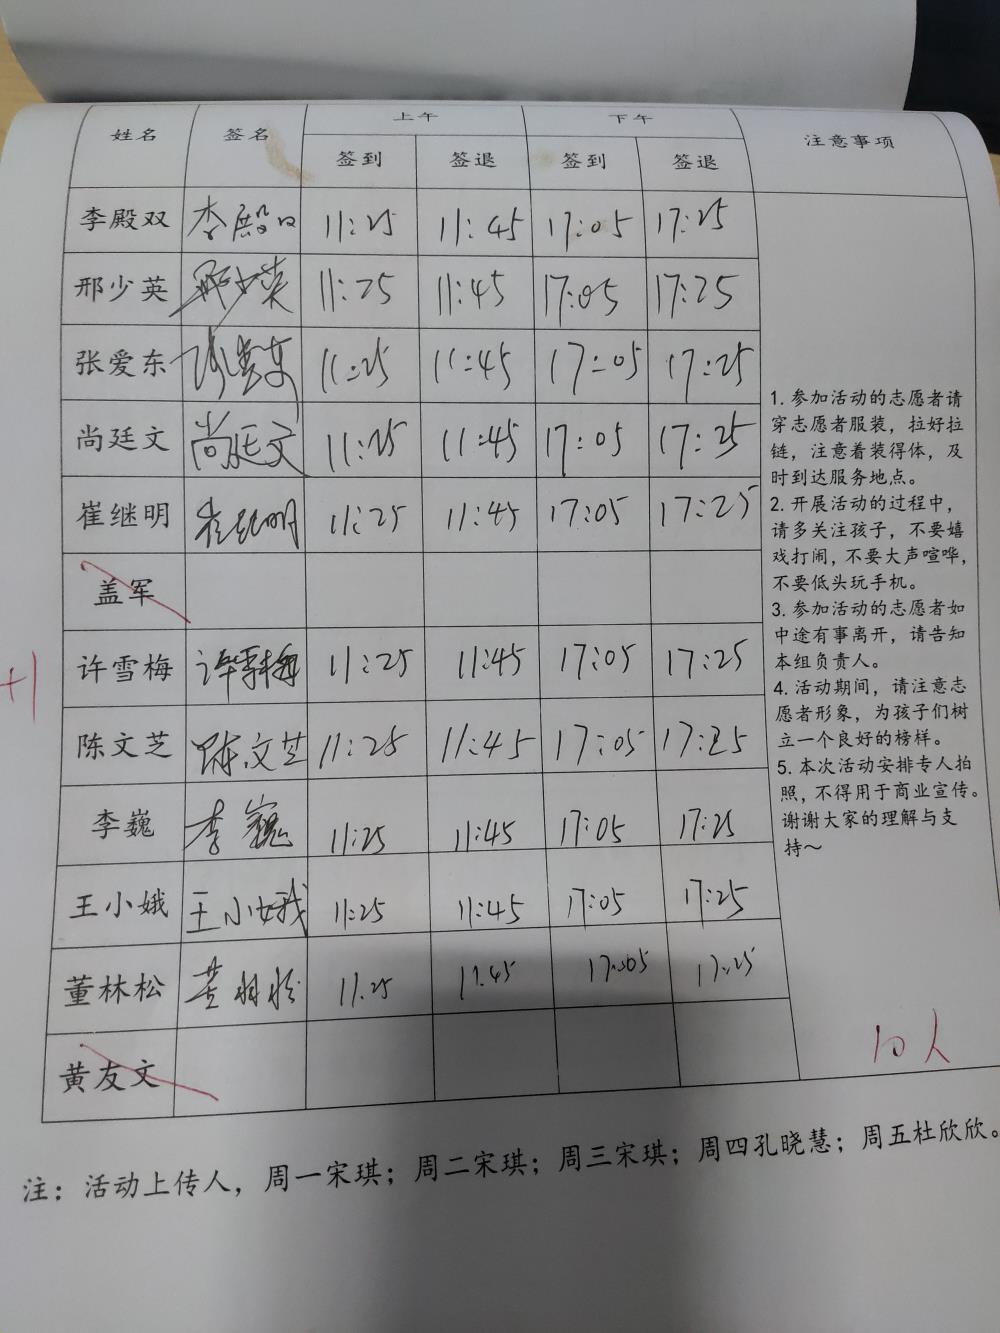 姓名 签名 上午 下午 注意事项
签到 签退 签到 签退
李殿双 李殿双 11:25 11:45 17:05 17:25
邢少英 邢少英 11:25 11:45 17:05 17:25
张爱东 张爱东 11:25 11:45 17:05 17:25
尚廷文 尚廷文 11:25 11:45 17:05 17:25
崔继明 崔继明 11:25 11:45 17:05 17:25
盖军
+1
许雪梅 许雪梅 11:25 11:45 17:05 17:25
陈文芝 陈文芝 11:25 11:45 17:05 17:25
李巍 李巍 11:25 11:45 17:05 17:25
王小娥 王小娥 11:25 11:45 17:05 17:25
董林松 董林松 11.25 11.45 17:05 17:25
黄友文
1. 参加活动的志愿者请
穿志愿者服装，拉好拉
链，注意着装得体，及
时到达服务地点。
2. 开展活动的过程中，
请多关注孩子，不要嬉
戏打闹，不要大声喧哗，
不要低头玩手机。
3. 参加活动的志愿者如
中途有事离开，请告知
本组负责人。
4. 活动期间，请注意志
愿者形象，为孩子们树
立一个良好的榜样。
5. 本次活动安排专人拍
照，不得用于商业宣传。
谢谢大家的理解与支
持～
10人
注：活动上传人，周一宋琪；周二宋琪；周三宋琪；周四孔晓慧；周五杜欣欣。